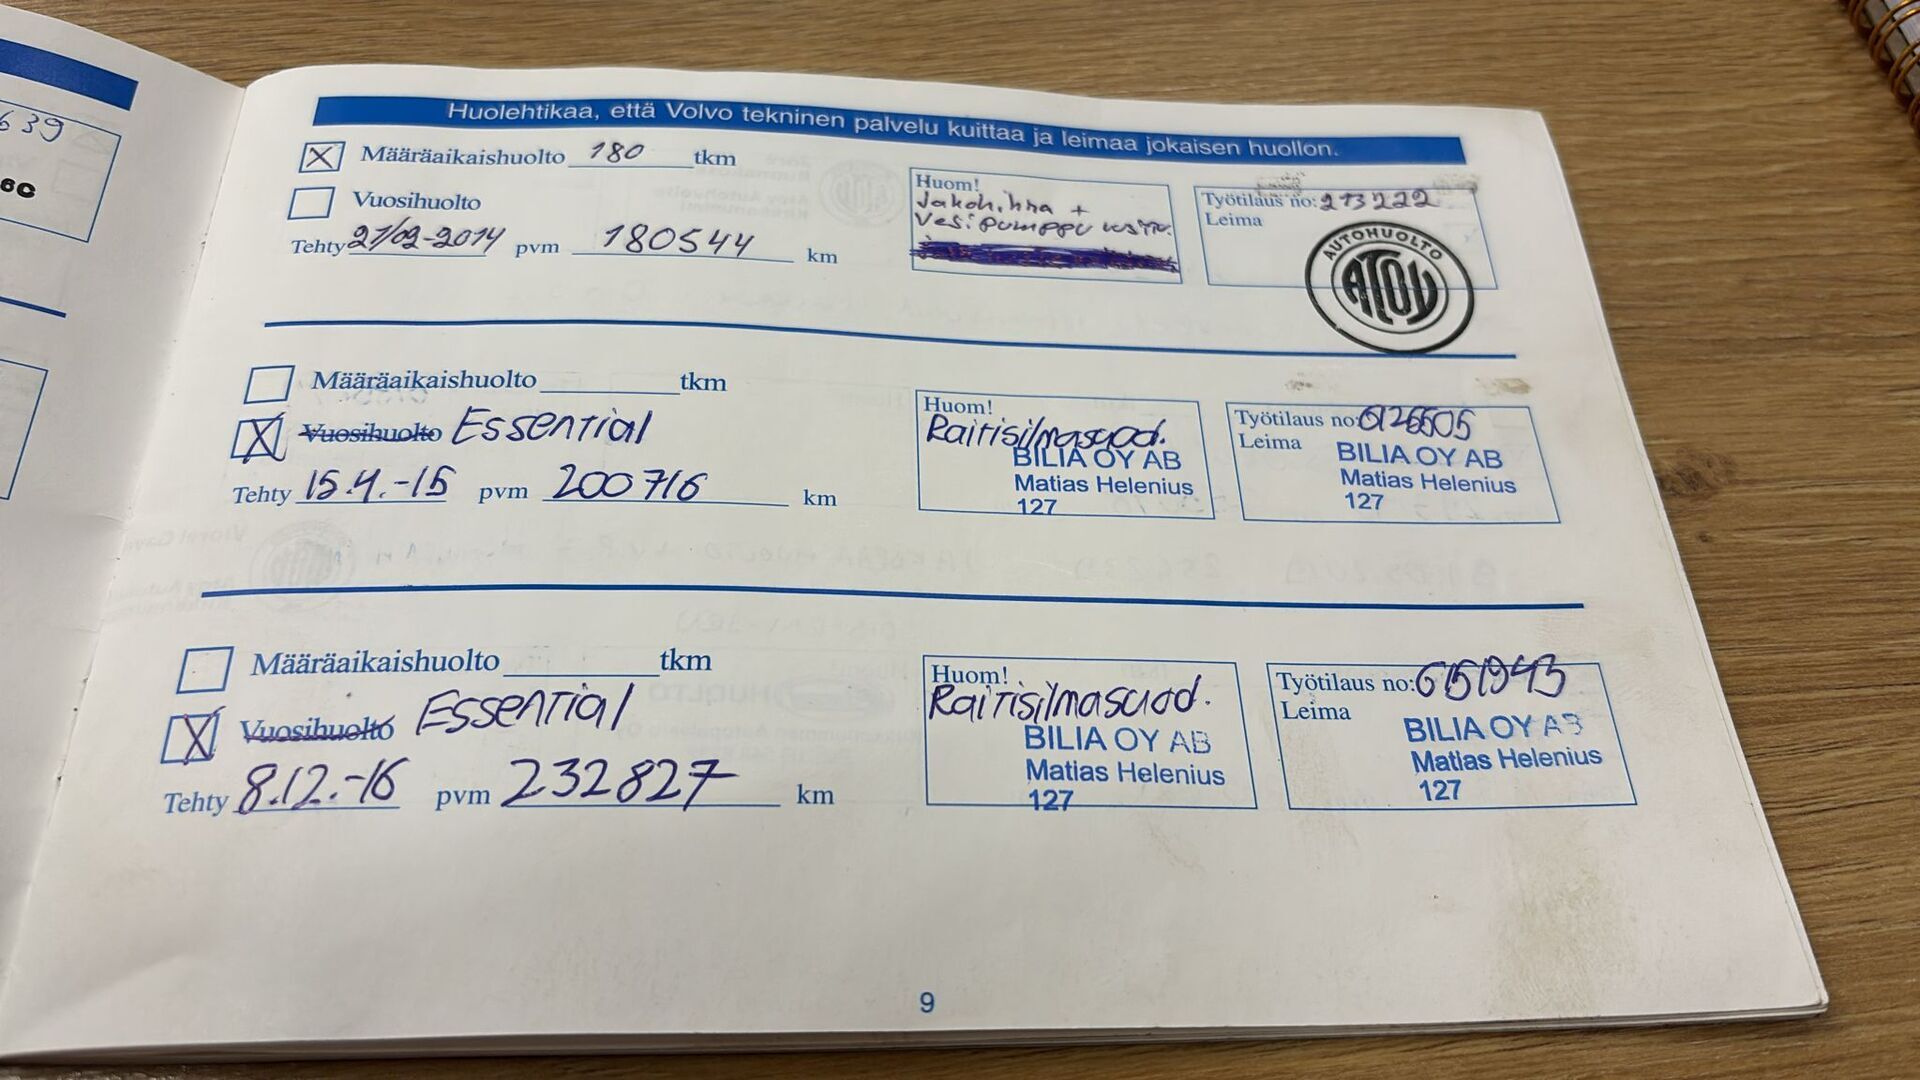 639
6C
Huolehtikaa, että Volvo tekninen palvelu kuittaa ja leimaa jokaisen huollon.
X Määräaikaishuolto 180 tkm
Vuosihuolto
Tehty 21/02-2014 pvm 180544 km
Huom!
Jakohihna +
Vesipumppu
Työtilaus no: 213222
Leima
AUTOHUOLTO
ATOY
Määräaikaishuolto tkm
X Vuosihuolto Essential
Tehty 15.4.-15 pvm 200716 km
Huom!
Raitisilmasuod.
BILIA OY AB
Matias Helenius
127
Työtilaus no: 6126505
Leima
BILIA OY AB
Matias Helenius
127
Määräaikaishuolto tkm
X Vuosihuolto Essential
Tehty 8.12.-16 pvm 232827 km
Huom!
Raitisilmasuod.
BILIA OY AB
Matias Helenius
127
Työtilaus no: 6151943
Leima
BILIA OY AB
Matias Helenius
127
9